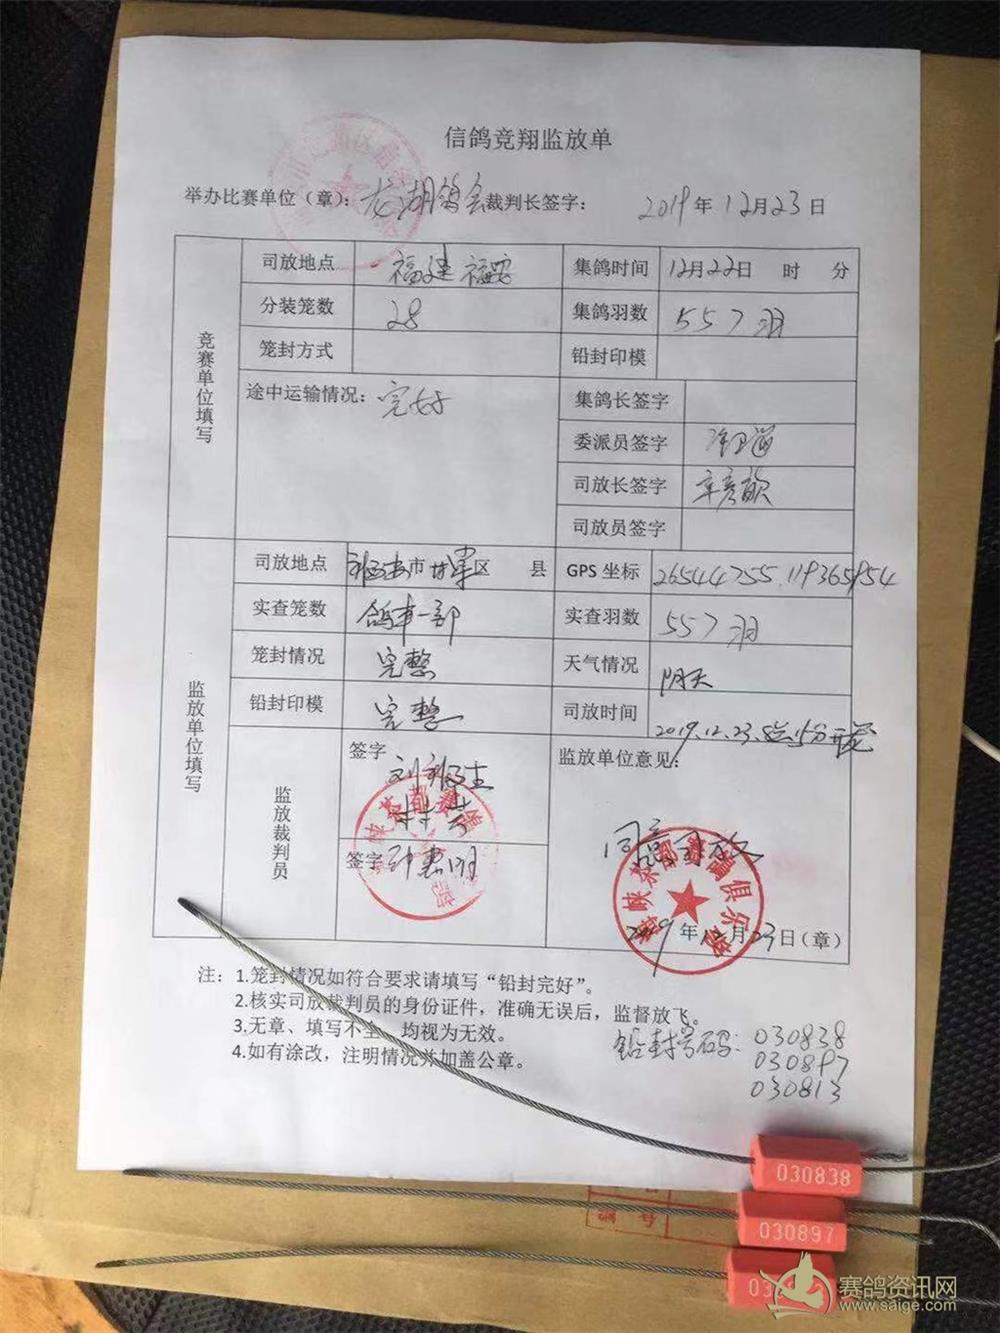 信鸽竞翔监放单
举办比赛单位（章）：龙湖鸽会裁判长签字： 2019年12月23日
竞赛单位填写
司放地点 福建 福安 集鸽时间 12月22日 时 分
分装笼数 28 集鸽羽数 557羽
笼封方式 铅封印模
途中运输情况：完好 集鸽长签字
委派员签字
司放长签字
司放员签字
监放单位填写
司放地点 市 区 县 GPS 坐标 26544755.119365954
实查笼数 鸽车一部 实查羽数 557羽
笼封情况 完整 天气情况 阴天
铅封印模 完整 司放时间 2019.12.23.
监放裁判员
签字
签字
监放单位意见：
同意司放
2019年12月23日（章）
注：1.笼封情况如符合要求请填写“铅封完好”。
2.核实司放裁判员的身份证件，准确无误后，监督放飞。
3.无章、填写不全、均视为无效。
4.如有涂改，注明情况并加盖公章。
铅封号码：030838
030897
030813
030838
030897
赛鸽资讯网
www.saige.com